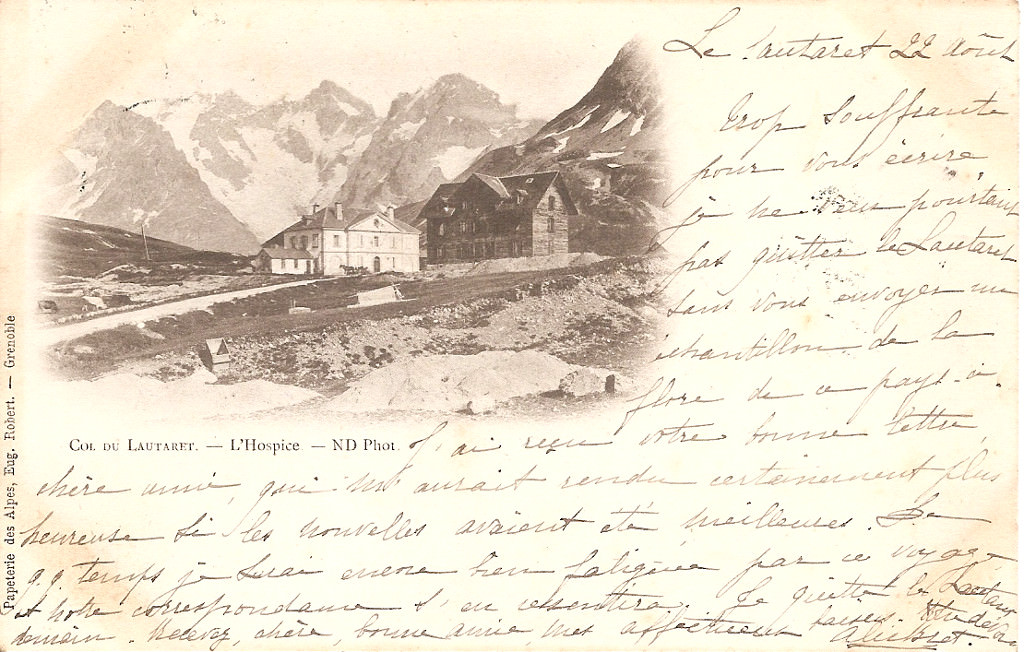 Le Lautaret 22 Août
Trop souffrante
pour vous écrire
je ne veux pourtant
pas quitter le Lautaret
sans vous envoyer un
échantillon de la
flore de ce pays-ci.
J'ai reçu votre bonne lettre,
chère amie, qui m'aurait rendu certainement plus
heureuse si les nouvelles avaient été meilleures. De
q.q temps je serai encore bien fatiguée par ce voyage
et notre correspondance s'en ressentira. Je quitte le Lautaret
demain. Recevez, chère, bonne amie, mes affectueux baisers.
COL DU LAUTARET. — L'Hospice. — ND Phot.
Papeterie des Alpes, Eug. Robert. — Grenoble